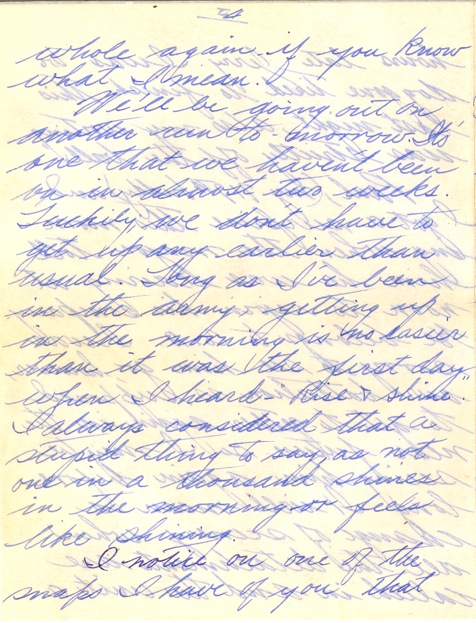 4
whole again if you know
what I mean.
We'll be going out on
another run to-morrow. It's
one that we haven't been
on in almost two weeks.
Luckily, we don't have to
get up any earlier than
usual. Long as I've been
in the army, getting up
in the morning is no easier
than it was the first day,
when I heard - "Rise & shine."
I always considered that a
stupid thing to say, as not
one in a thousand shines
in the morning or feels
like shining.
I notice on one of the
snaps I have of you that